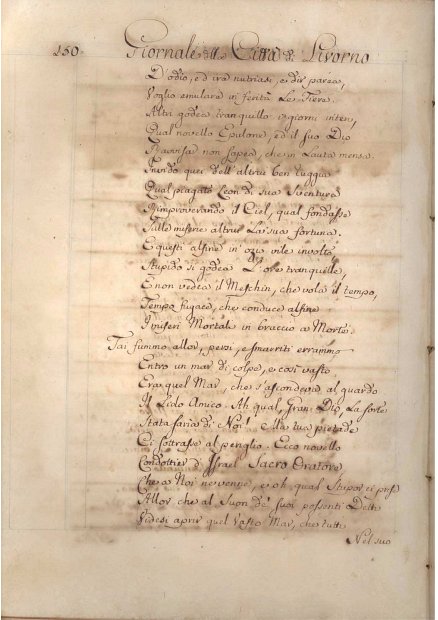 150. Giornale della Città di Livorno
D'odio, ed ira nutriasi, e dir parea,
Voglio emulare in ferità Le Fiere.
Altri godea tranquillo i giorni interi,
Qual novello Epulone, ed il suo Dio
non sapea, che in Lauta mensa.
quei dell'altrui ben
Qual piagato Leon di sua Sventura
Rimproverando il Ciel, qual fondasse
Sulle miserie altrui La sua fortuna.
E questi alfine in ozio vile involto
Stupido si godea L'ore tranquille,
E non vedea il Meschin, che vola il tempo,
Tempo fugace, che conduce alfine
I miseri Mortali in braccio a Morte.
Tai fummo allor, persi, e smarriti errammo
Entro un mar di colpe, e così vasto
Era quel Mar, che s'ascondeva al guardo
Il Lido Amico. Ah qual, Gran Dio, La sorte
Stata saria di Noi! Ma tua pietade
Ci sottrasse al periglio. Ecco novello
Condottier d'Israel Sacro Oratore
Che a Noi ne venne, e oh qual Stupor ci prese
Allor che al Suon de' suoi possenti Detti
Videsi aprir quel Vasto Mar, che tutti
Nel suo